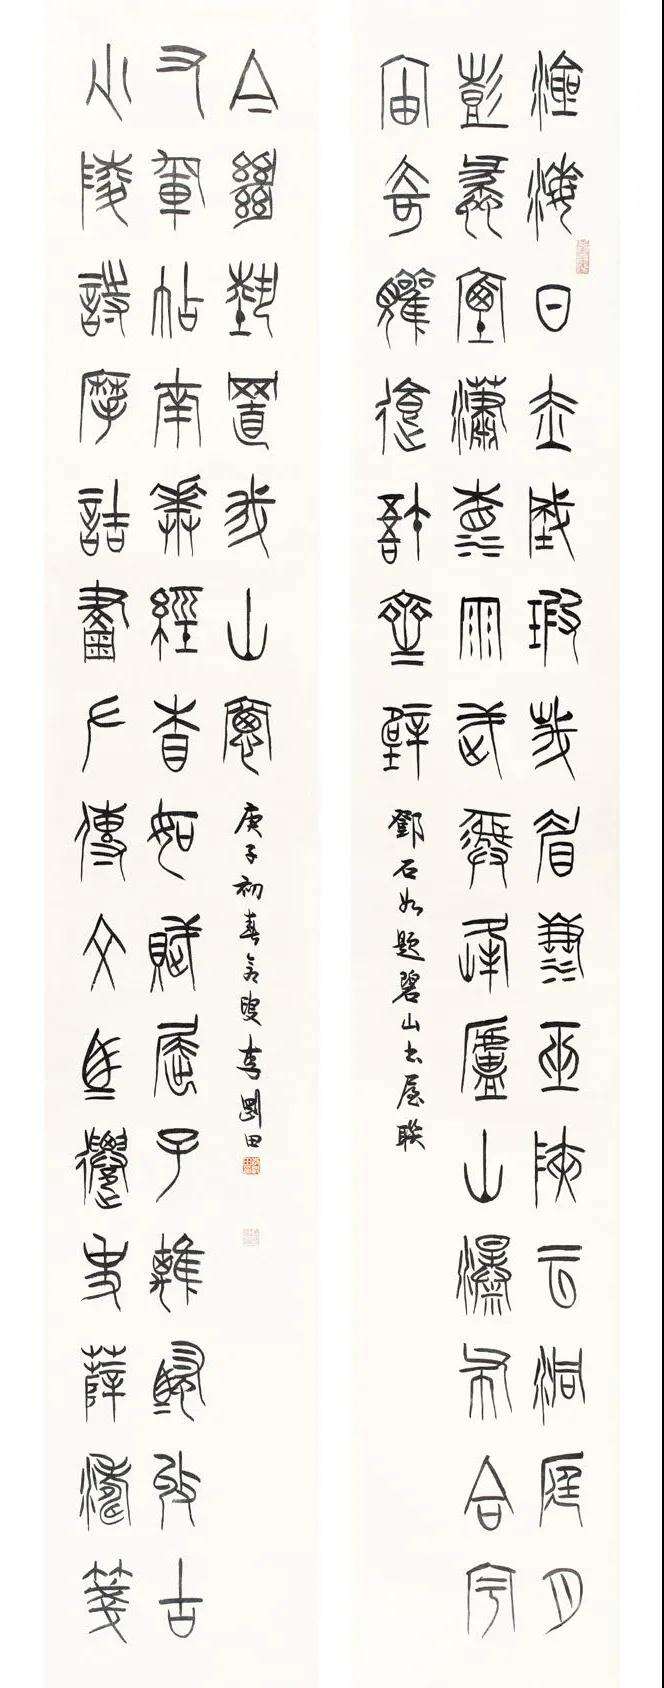 滄海日赤城霞峨眉雪巫陜云洞庭月
彭蠡煙瀟湘雨武夷峰廬山瀑布合宇
宙奇觀繪吾齋壁
鄧石如題碧山書屋聯
少陵詩摩詰畫左傳文馬遷史薛濤箋
右軍帖南華經相如賦屈子離騷收古
今絕藝置我山窗
庚子初春叟李剛田